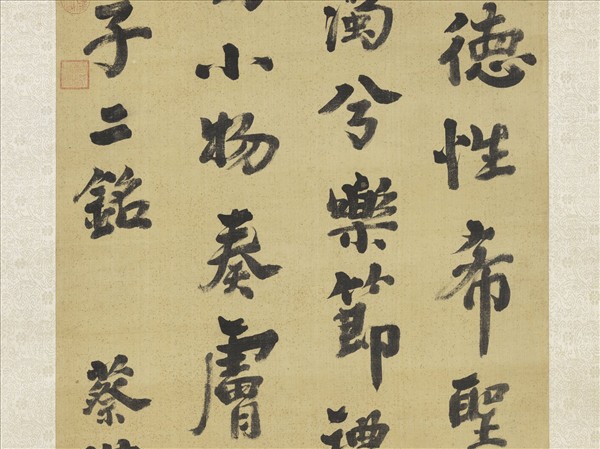 德性希聖
濁兮樂節禮
小物奏膚
子二銘
蔡